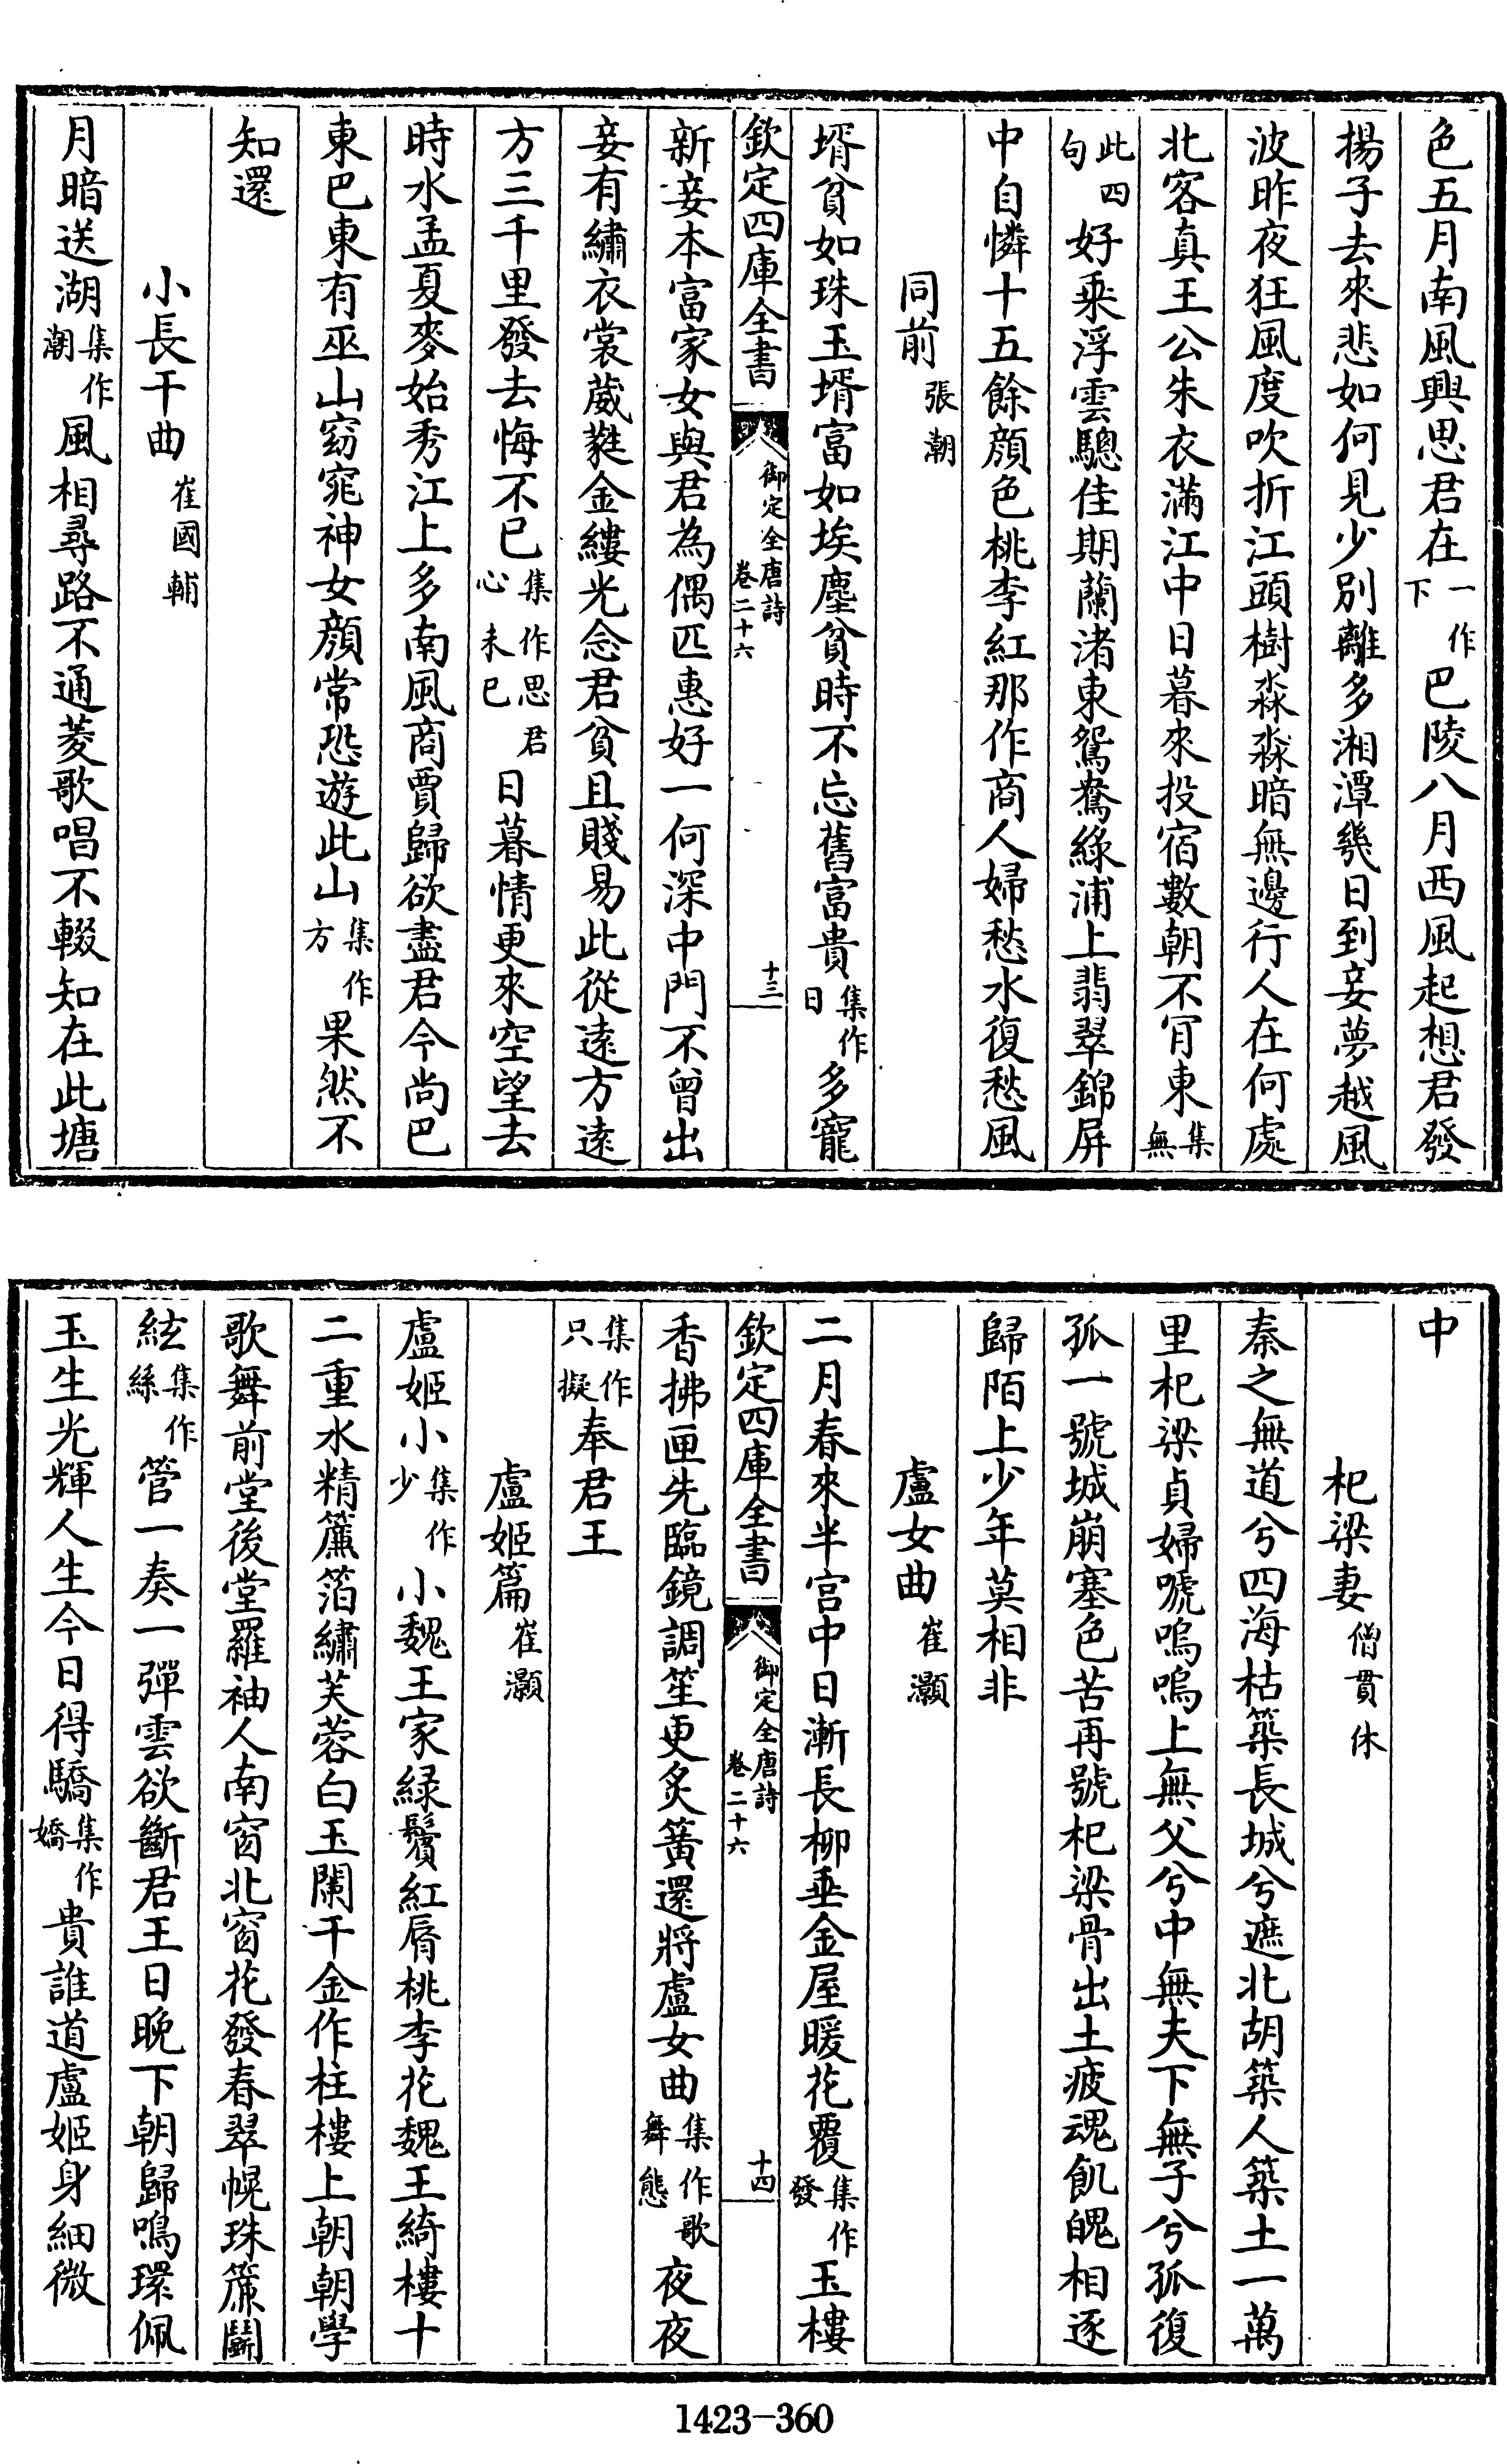 色五月南風興思君在一作下巴陵八月西風起想君發
揚子去來悲如何見少別離多湘潭幾日到妾夢越風
波昨夜狂風度吹折江頭樹淼淼暗無邊行人在何處
北客真王公朱衣滿江中日暮來投宿數朝不肎東集無
此四句好乘浮雲驄佳期蘭渚東鴛鴦綠浦上翡翠錦屏
中自憐十五餘顏色桃李紅那作商人婦愁水復愁風
同前張潮
壻貧如珠玉壻富如埃塵貧時不忘舊富貴集作日多寵
欽定四庫全書 御定全唐詩卷二十六 十三
新妾本富家女與君為偶匹惠好一何深中門不曾出
妾有繡衣裳葳蕤金縷光念君貧且賤易此從遠方遠
方三千里發去悔不已集作思君心未已日暮情更來空望去
時水孟夏麥始秀江上多南風商賈歸欲盡君今尚巴
東巴東有巫山窈窕神女顏常恐遊此山集作方果然不
知還
小長干曲崔國輔
月暗送湖集作潮風相尋路不通菱歌唱不輟知在此塘
中
杞梁妻僧貫休
秦之無道兮四海枯築長城兮遮北胡築人築土一萬
里杞梁貞婦嗁嗚嗚上無父兮中無夫下無子兮孤復
孤一號城崩塞色苦再號杞梁骨出土疲魂飢魄相逐
歸陌上少年莫相非
盧女曲崔灝
二月春來半宮中日漸長柳垂金屋暖花覆集作發玉樓
欽定四庫全書 御定全唐詩卷二十六 十四
香拂匣先臨鏡調笙更炙簧還將盧女曲集作歌舞態夜夜
集作只擬奉君王
盧姬篇崔灝
盧姬小集作少小魏王家綠鬢紅脣桃李花魏王綺樓十
二重水精簾箔繡芙蓉白玉闌干金作柱樓上朝朝學
歌舞前堂後堂羅袖人南窗北窗花發春翠幌珠簾鬭
絃集作絲管一奏一彈雲欲斷君王日晚下朝歸鳴環佩
玉生光輝人生今日得驕集作嬌貴誰道盧姬身細微
1423-360